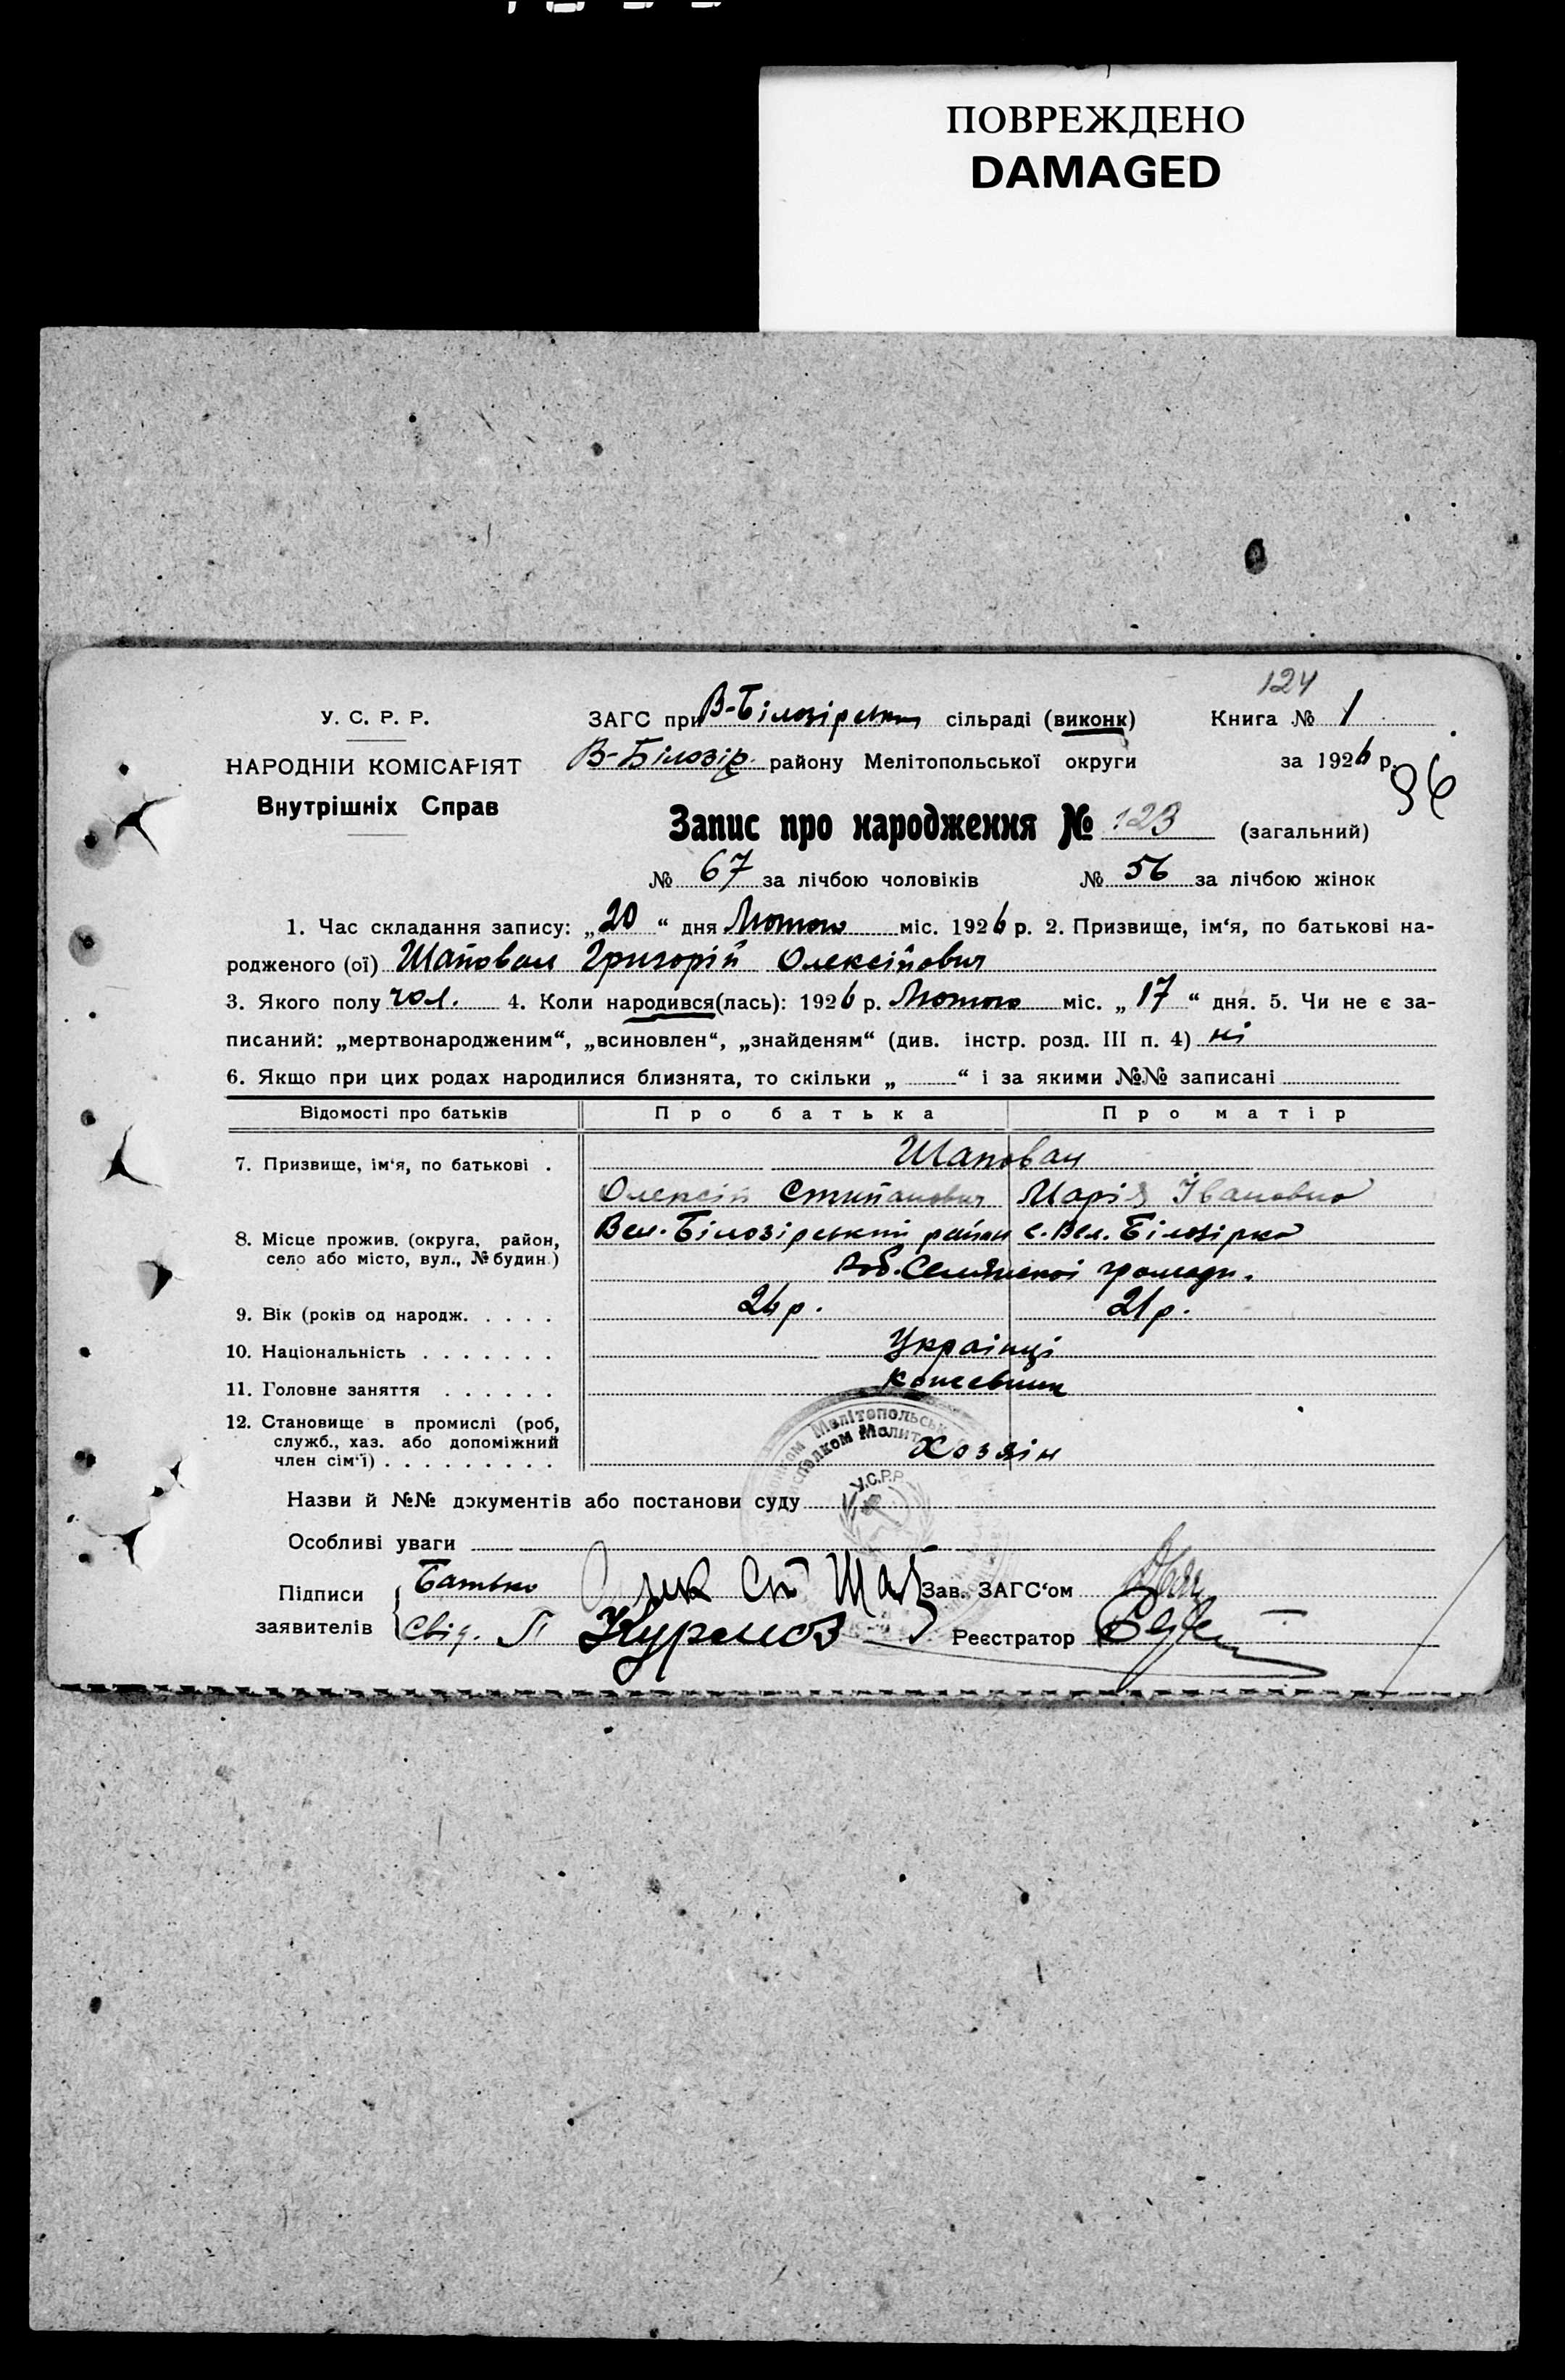 ПОВРЕЖДЕНО
DAMAGED
124
У. С. Р. Р.
ЗАГС при В-Білозірськ сільраді (виконк) Книга № 1
НАРОДНІЙ КОМІСАРІЯТ
В-Білозір. району Мелітопольської округи за 1926 р.
96
Внутрішніх Справ
Запис про народження № 123 (загальний)
№ 67 за лічбою чоловіків № 56 за лічбою жінок
1. Час складання запису: „20“ дня Лютого міс. 1926 р. 2. Призвище, ім‘я, по батькові на-
родженого (ої) Шаповал Григорій Олексійович
3. Якого полу чол. 4. Коли народився(лась): 1926 р. Лютого міс. „17“ дня. 5. Чи не є за-
писаний: „мертвонародженим“, „всиновлен“, „знайденям“ (див. інстр. розд. III п. 4) ні
6. Якщо при цих родах народилися близнята, то скільки „ “ і за якими №№ записані
Відомості про батьків Про батька Про матір
7. Призвище, ім‘я, по батькові . Шаповал
Олексій Степанович Марія Івановна
8. Місце прожив. (округа, район, село або місто, вул., № будин.) Вел. Білозірський район с. Вел. Білозірка
громади.
9. Вік (років од народж. . . . . 24 р. 21 р.
10. Національність . . . . . . . Українці
11. Головне заняття . . . . . .
12. Становище в промислі (роб,
служб., хаз. або допоміжний
член сім‘ї) . . . . . . . . . Хозяїн
У.С.Р.Р.
Назви й №№ документів або постанови суду
Особливі уваги
Підписи заявителів Батько Олек Ст Шап Зав. ЗАГС‘ом
Свід. Реєстратор